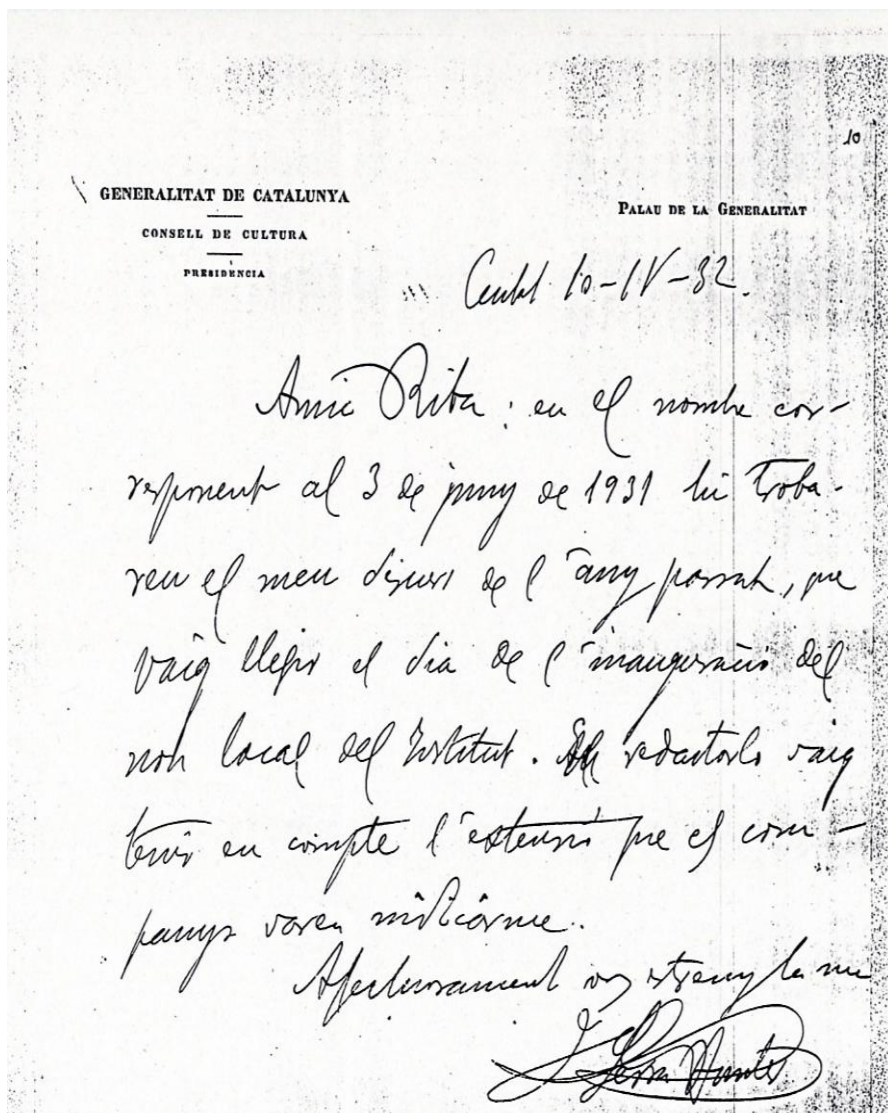 10
GENERALITAT DE CATALUNYA
CONSELL DE CULTURA
PRESIDENCIA
PALAU DE LA GENERALITAT
10-IV-32.
Amic Riba: en el nombre cor-
responent al 3 de juny de 1931 hi troba-
reu el meu discurs de l'any passat, que
vaig llegir el dia de l'inauguració del
nou local del Institut. redactarlo vaig
tenir en compte l'extensió que els com-
panys varen indicarme.
Afectuosament us estreny la ma
J. Serra Hunter